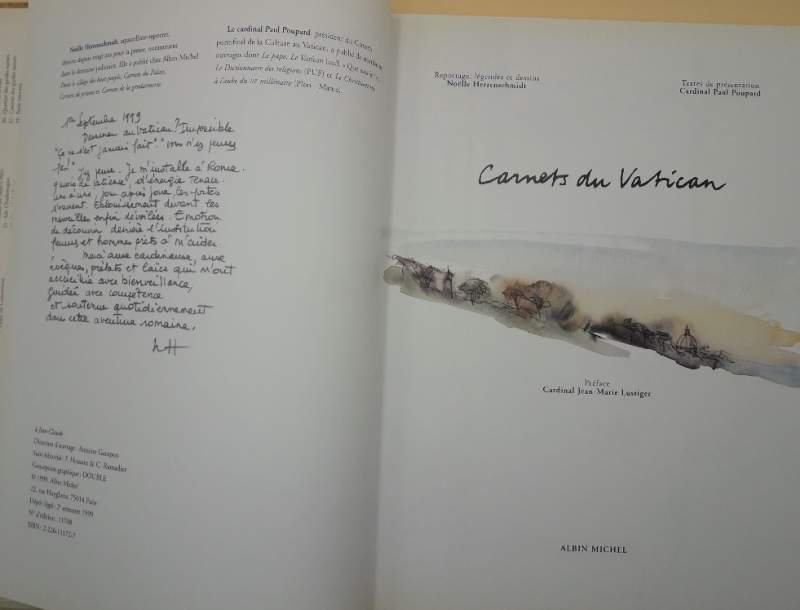 Noëlle Herrenschmidt, aquarelliste-reporter,
dessine depuis vingt ans pour la presse, notamment
dans le domaine judiciaire. Elle a publié chez Albin Michel
Dans le village des haut-parqués, Carnets du Palais,
Carnets de prisons et Carnets de la gendarmerie.
Le cardinal Paul Poupard, président du Conseil
pontifical de la Culture au Vatican, a publié de nombreux
ouvrages dont Le pape, Le Vatican (coll. « Que sais-je »),
Le Dictionnaire des religions (PUF) et Le Christianisme
à l'aube du IIIe millénaire (Plon - Mame).
1er Septembre 1999
Dessiner au Vatican? Impossible
"Ça ne s'est jamais fait"
J'y pense. Je m'installe à Rome.
d'énergie tenace
jour après jour, les portes
s'ouvrent. Éblouissement devant les
merveilles enfin dévoilées. Émotion
de découvrir derrière l'institution
femmes et hommes prêts à m'aider.
Merci aux cardinaux, aux
évêques, prélats et laïcs qui m'ont
accueillie avec bienveillance,
guidée avec compétence
et soutenue quotidiennement
dans cette aventure romaine.
NH
à Jean-Claude
Direction d'ouvrage :
Suivi éditorial :
Conception graphique : DOUBLE
© 1999, Albin Michel
22, rue Huyghens, 75014 Paris
Dépôt légal : 2e semestre 1999
N° d'édition : 11708
ISBN : 2-226-11172-7
Reportage, légendes et dessins
Noëlle Herrenschmidt
Textes de présentation
Cardinal Paul Poupard
Carnets du Vatican
Préface
Cardinal Jean-Marie Lustiger
ALBIN MICHEL